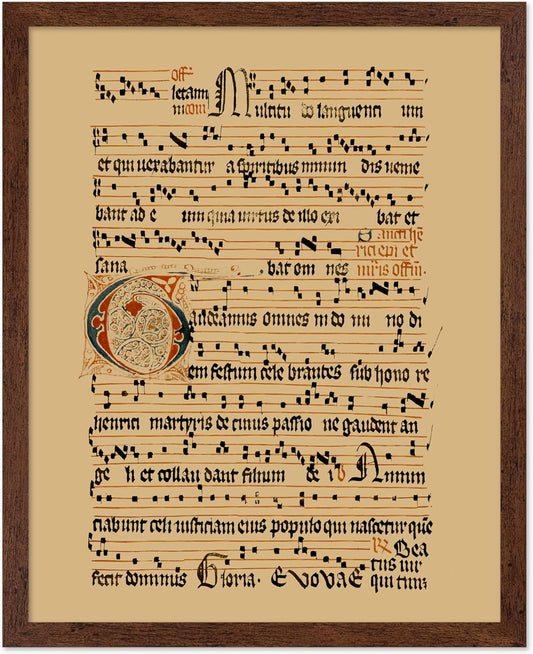 off
letam Multitu do languenti um
m com
et qui verabantur a spiritibus inmun dis venie
bant ad e um quia virtus de illo exi bat et
Sancti hē
rici epi et
sana bat om nes mr̄is offm̄.
Gaudeamus omnes in do mi no di
em festum cele brantes sub hono re
henrici martyris de cuius passio ne gaudent an
ge li et collau dant filium de i Annun
ciabunt celi iusticiam eius populo qui nascetur quē
R Bea
tus vir
fecit dominus Gloria. EVOVAE qui tim